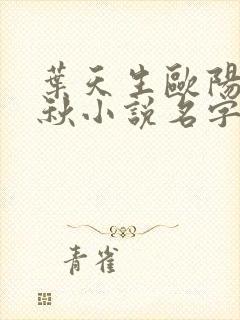 葉天生歐陽
秋小說名字
青雀